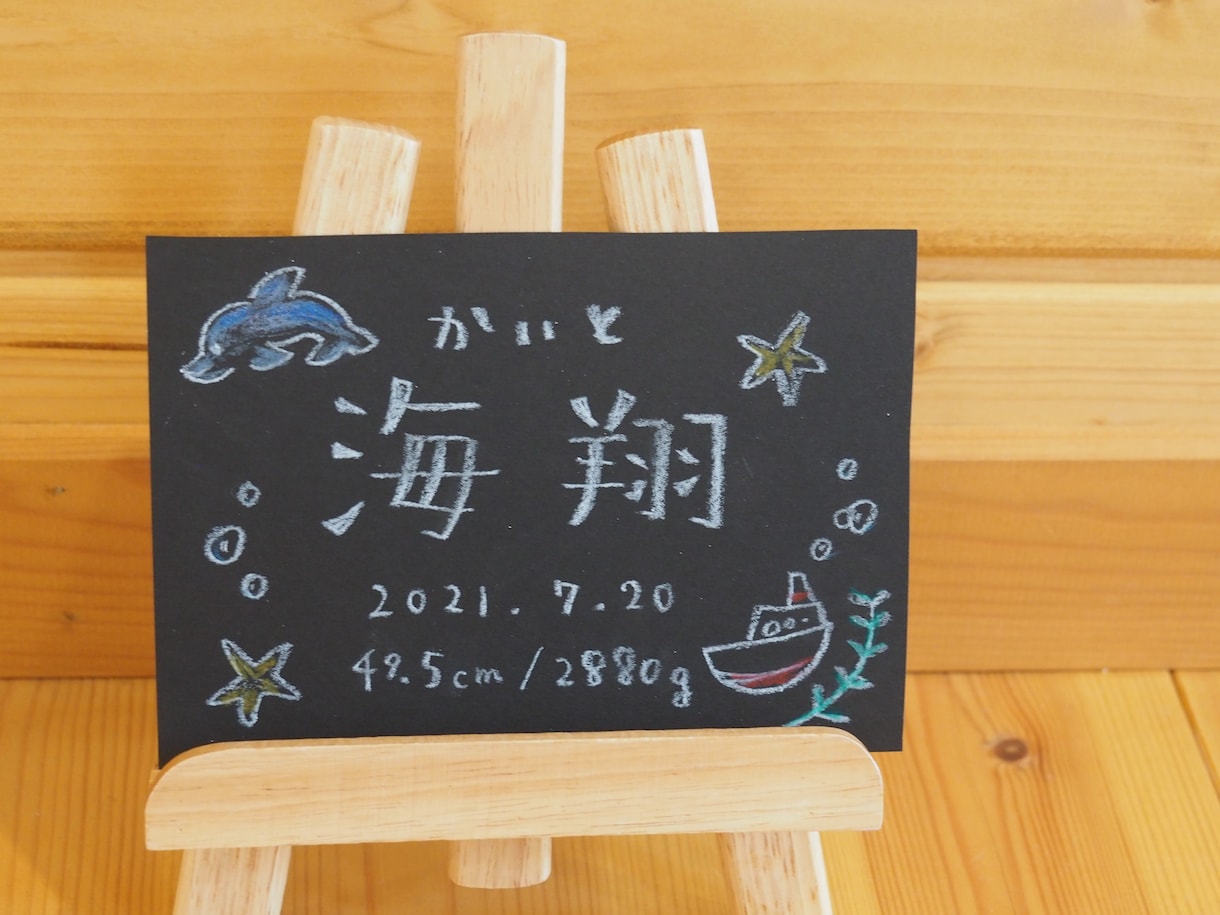 かいと
海翔
2021.7.20
49.5cm/2880g